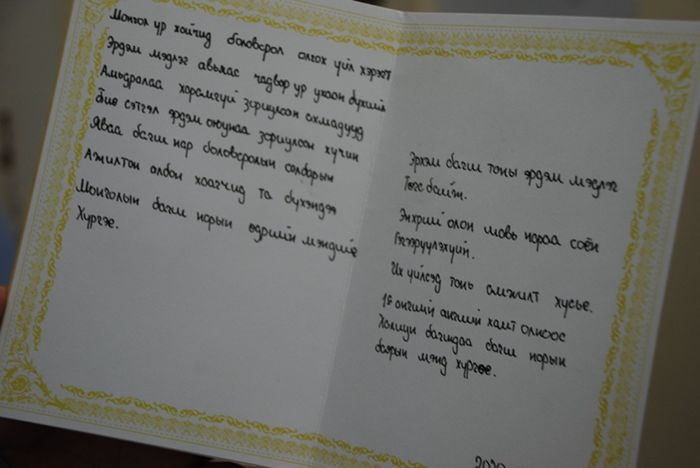 Монгол үр хойчид боловсрол олгох үйл хэрэгт
Эрдэм мэдлэг авьяас чадвар ур ухаан бүхий
Амьдралаа харамгүй зориулсан ахмадууд
Бие сэтгэл эрдэм оюунаа зориулсан хүчин
Яваа багш нар боловсролын салбарын
Ажилтан албан хаагчид та бүхэндээ
Монголын багш нарын өдрийн мэндийг
Хүргэе.
Эрхэм багш таны эрдэм мэдлэг
Төгс байг.
Энхрий олон шавь нараа соён
Гэгээрүүлэхүй.
Их үйлсэд тань амжилт хүсье.
1б ангийн ангийн хамт олноос
Халиун багшдаа багш нарын
баярын мэнд хүргэе.